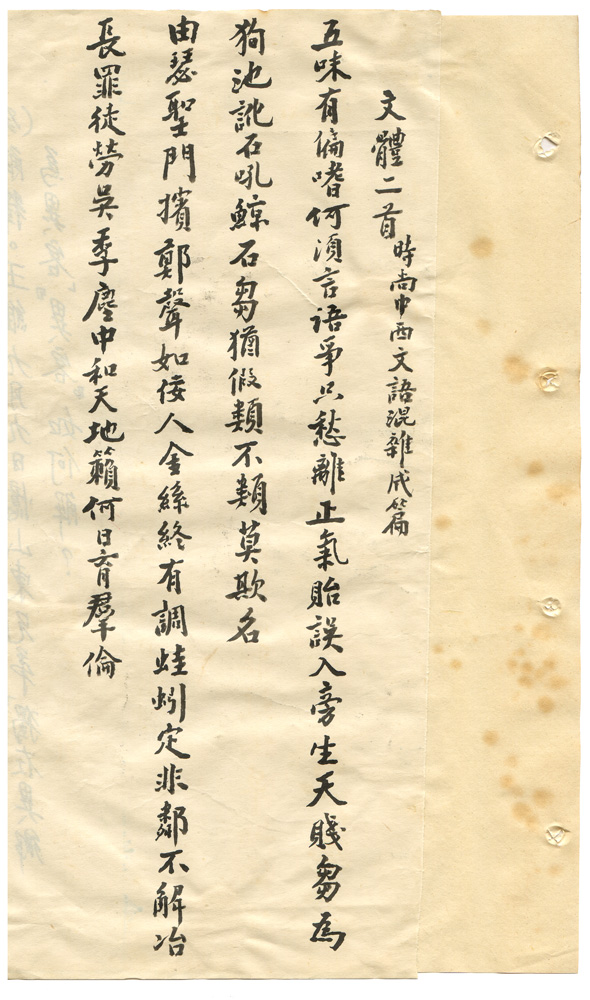 文體二首 時尚中西文語混雜成篇
五味有偏嗜何須言語爭只愁離正氣貽誤入旁生天賤芻為
狗池訛石吼鯨石芻猶假類不類莫欺名
由瑟聖門擯鄭聲如佞人金絲終有調蛙蚓定非鄰不解冶
長罪徒勞吳季塵中和天地籟何日育羣倫